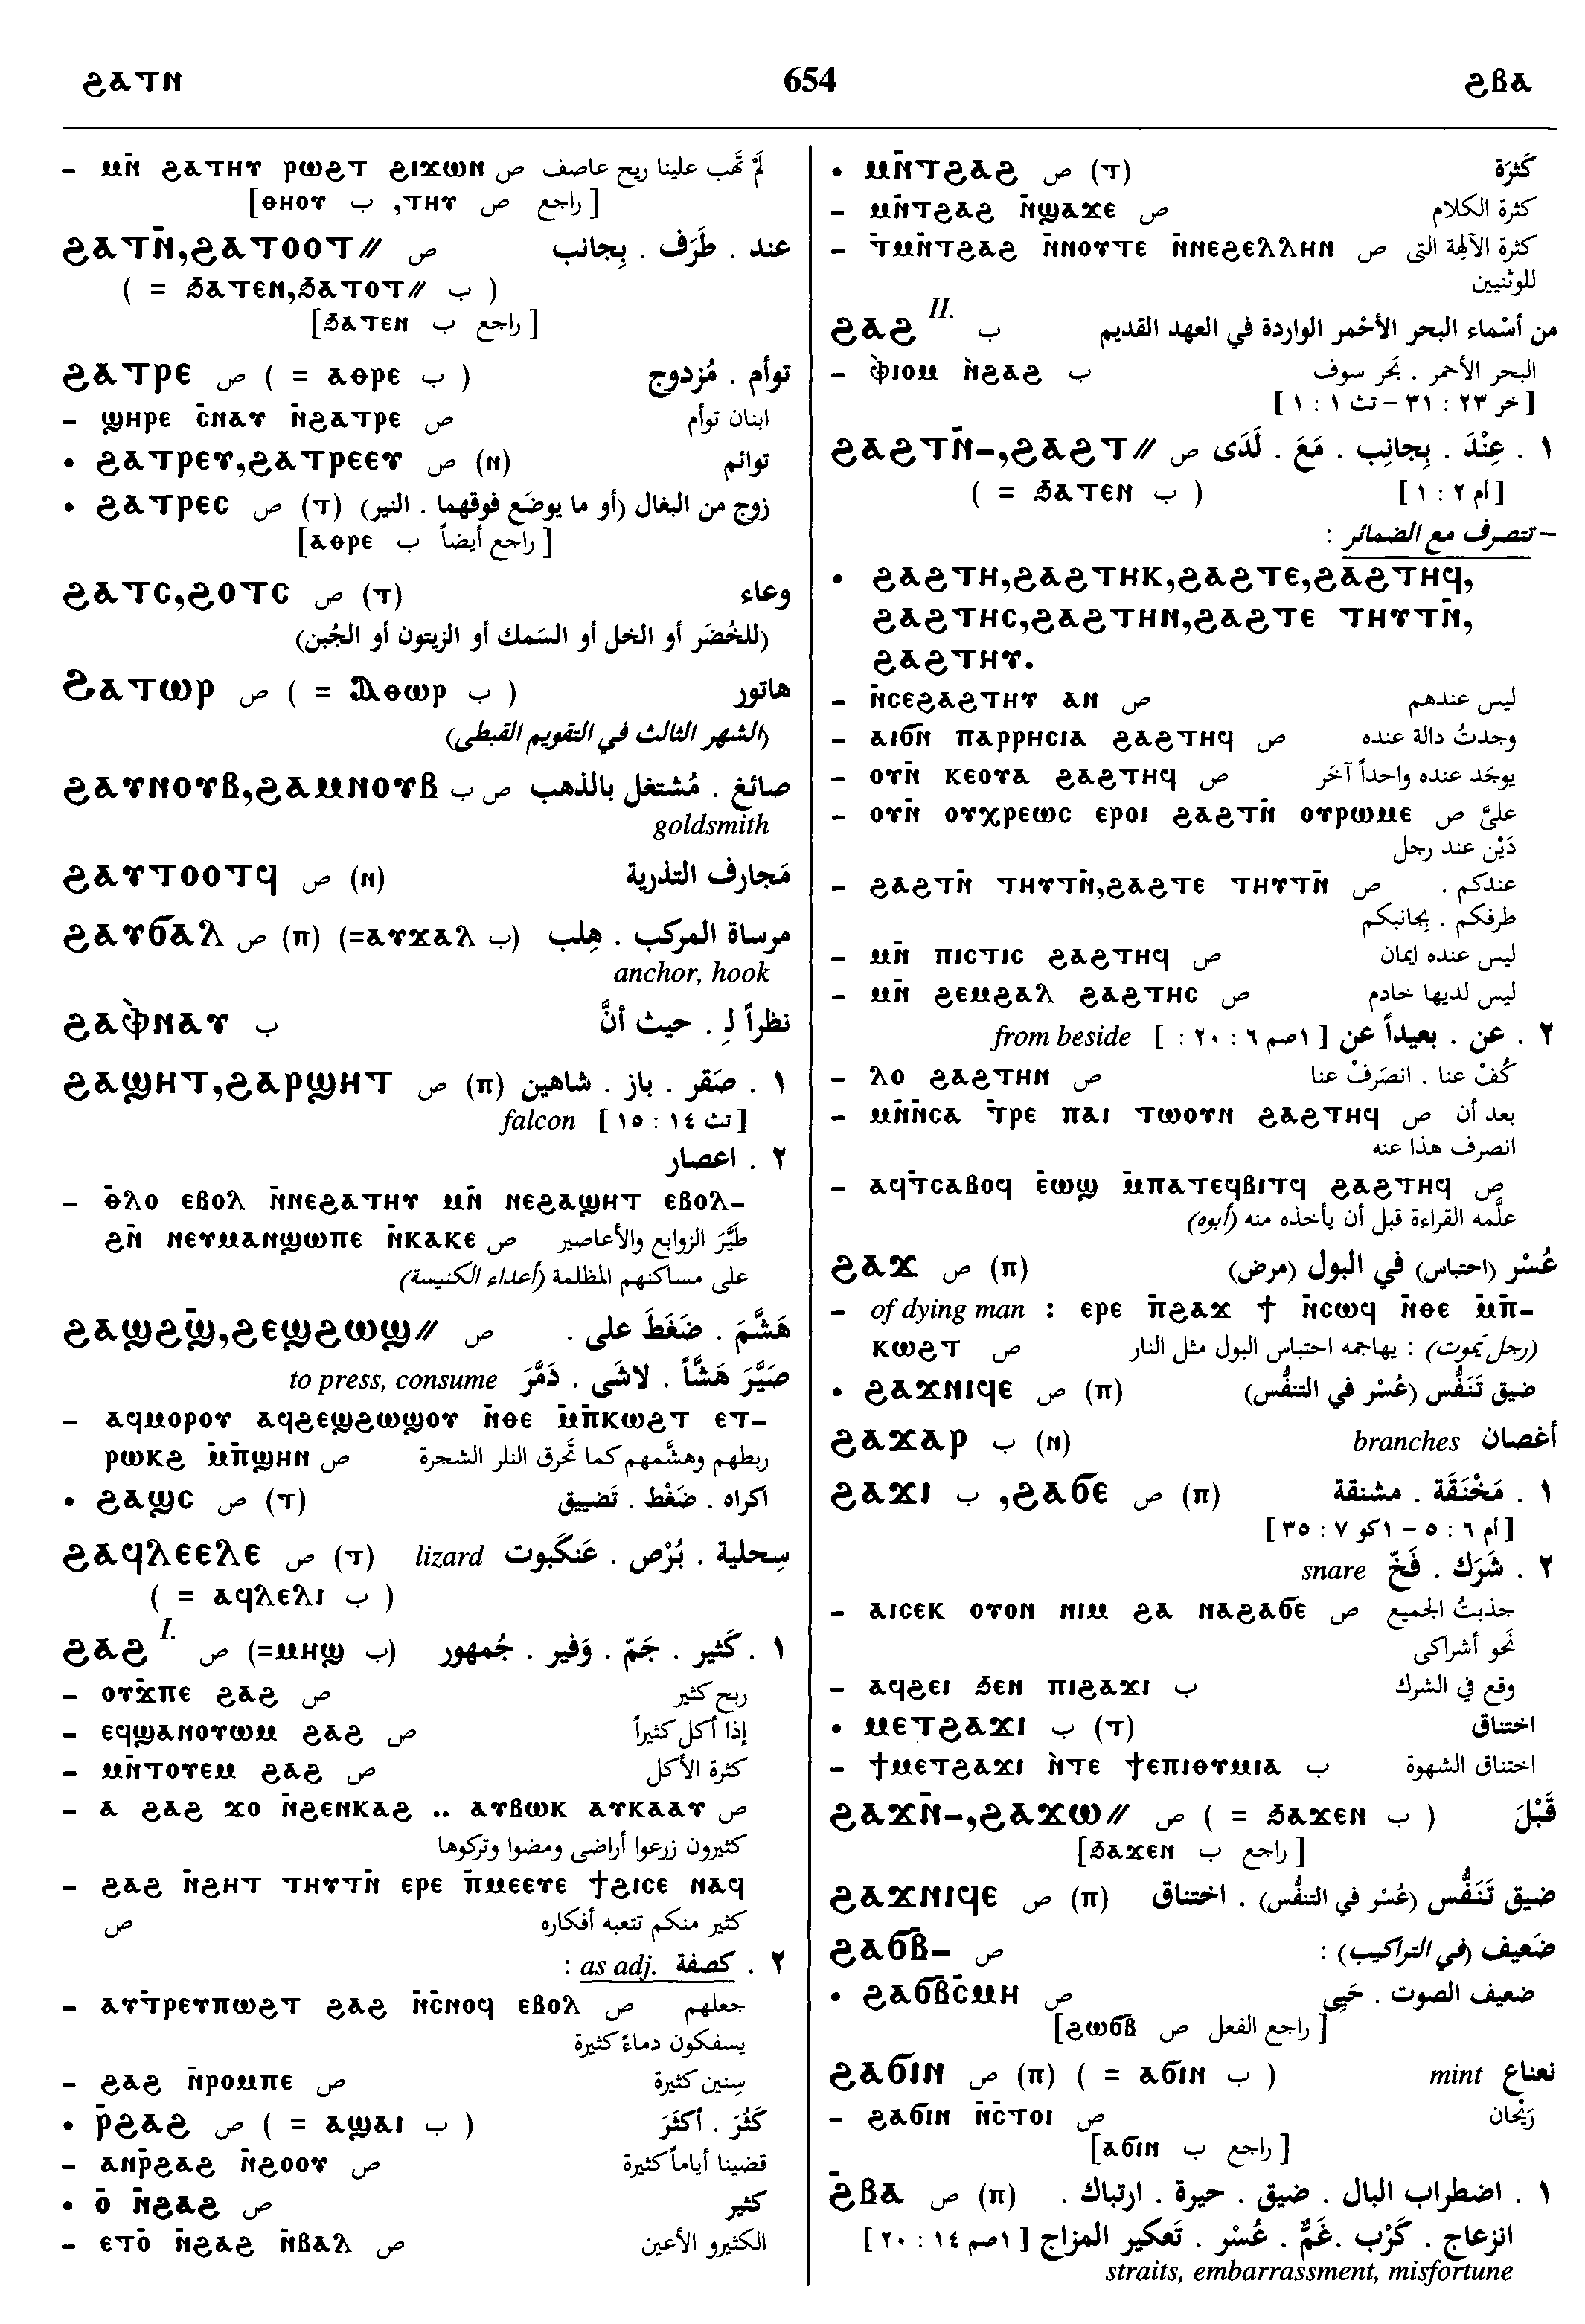 ϩⲁⲧⲛ 654 ϩⲃⲁ
– ⲙⲛ̄ ϩⲁⲧⲏⲩ ⲣⲱϩⲧ ϩⲓϫⲱⲛ ص لَمْ تَهُب علينا ريح عاصف
[ راجع ص ⲧⲏⲩ, ب ⲑⲏⲟⲩ]
ϩⲁⲧⲛ̄,ϩⲁⲧⲟⲟⲧ// ص عند . طَرَف . بِجانب
( = ϧⲁⲧⲉⲛ,ϧⲁⲧⲟⲧ// ب )
[ راجع ب ϧⲁⲧⲉⲛ]
ϩⲁⲧⲣⲉ ص ( = ⲁⲑⲣⲉ ب ) توأم . مُزدوج
– ϣⲏⲣⲉ ⲥ̄ⲛⲁⲩ ⲛ̄ϩⲁⲧⲣⲉ ص ابنان توأم
• ϩⲁⲧⲣⲉⲩ,ϩⲁⲧⲣⲉⲉⲩ ص (ⲛ) توائم
• ϩⲁⲧⲣⲉⲥ ص (ⲧ) زوج من البغال (أو ما يوضَع فوقهما . النير)
[ راجع أيضاً ب ⲁⲑⲣⲉ]
ϩⲁⲧⲥ,ϩⲟⲧⲥ ص (ⲧ) وعاء
(للخُضَر أو الخل أو السَمك أو الزيتون أو الجُبن)
Ϩⲁⲧⲱⲣ ص ( = Ⲁⲑⲱⲣ ب ) هاتور
(الشهر الثالث في التقويم القبطي)
ϩⲁⲩⲛⲟⲩⲃ,ϩⲁⲙⲛⲟⲩⲃ ص ب صائغ . مُشتغل بالذهب
goldsmith
ϩⲁⲩⲧⲟⲟⲧϥ ص (ⲛ) مَجارف التذرية
ϩⲁⲩϭⲁⲗ ص (ⲡ) (=ⲁⲩϫⲁⲗ ب) مرساة المركب . هِلب
anchor, hook
ϩⲁⲫ̀ⲛⲁⲩ ب نظراً لِ . حيث أنَّ
ϩⲁϣⲏⲧ,ϩⲁⲣϣⲏⲧ ص (ⲡ) ١ . صَقر . باز . شاهين
falcon [ تث ١٤ : ١٥ ]
٢ . اعصار
– ⲑ̄ⲗⲟ ⲉⲃⲟⲗ ⲛ̄ⲛⲉϩⲁⲧⲏⲩ ⲙⲛ̄ ⲛⲉϩⲁϣⲏⲧ ⲉⲃⲟⲗ–
ϩⲛ̄ ⲛⲉⲩⲙⲁⲛϣⲱⲡⲉ ⲛ̄ⲕⲁⲕⲉ ص طَيَّرَ الزوابع والأعاصير
على مساكنهم المظلمة (أعداء الكنيسة)
ϩⲁϣϩϣ̄,ϩⲉϣϩⲱϣ// ص هَشَّمَ . ضَغَطَ على .
to press, consume صَيَّرَ هَشَّاً . لاشَى . دَمَّرَ
– ⲁϥⲙⲟⲣⲟⲩ ⲁϥϩⲉϣϩⲱϣⲟⲩ ⲛ̄ⲑⲉ ⲙ̄ⲡ̄ⲕⲱϩⲧ ⲉⲧ–
ⲣⲱⲕϩ ⲙ̄ⲡ̄ϣⲏⲛ ص ربطهم وهشَّمهم كما تَحرق النلر الشجرة
• ϩⲁϣⲥ ص (ⲧ) اكراه . ضَغْط . تَضييق
ϩⲁϥⲗⲉⲉⲗⲉ ص (ⲧ) lizard سِحلية . بُرْص . عَنكَبوت
( = ⲁϥⲗⲉⲗⲓ ب )
ϩⲁϩ I. ص (=ⲙⲏϣ ب) ١ . كَثير . جَمّ . وَفير . جُمهور
– ⲟⲩϫ̄ⲡⲉ ϩⲁϩ ص ربح كثير
– ⲉϥϣⲁⲛⲟⲩⲱⲙ ϩⲁϩ ص إذا أكل كثيراً
– ⲙⲛ̄ⲧⲟⲩⲉⲙ ϩⲁϩ ص كثرة الأكل
– ⲁ ϩⲁϩ ϫⲟ ⲛ̄ϩⲉⲛⲕⲁϩ .. ⲁⲩⲃⲱⲕ ⲁⲩⲕⲁⲁⲩ ص
كثيرون زرعوا أراضى ومضوا وتركوها
– ϩⲁϩ ⲛ̄ϩⲏⲧ ⲧⲏⲩⲧⲛ̄ ⲉⲣⲉ ⲡ̄ⲙⲉⲉⲩⲉ ϯϩⲓⲥⲉ ⲛⲁϥ
ص كثير منكم تتعبه أفكاره
٢ . كصفة as adj. :
– ⲁⲩⲧ̄ⲣⲉⲩⲡⲱϩⲧ ϩⲁϩ ⲛ̄ⲥ̄ⲛⲟϥ ⲉⲃⲟⲗ ص جعلهم
يسفكون دماءً كثيرة
– ϩⲁϩ ⲛ̄ⲣⲟⲙⲡⲉ ص سِنين كثيرة
• ⲣ̄ϩⲁϩ ص ( = ⲁϣⲁⲓ ب ) كَثُرَ . أكثَرَ
– ⲁⲛⲣ̄ϩⲁϩ ⲛ̄ϩⲟⲟⲩ ص قضينا أياماً كثيرة
• ⲟ̄ ⲛ̄ϩⲁϩ ص كثير
– ⲉⲧⲟ̄ ⲛ̄ϩⲁϩ ⲛ̄ⲃⲁⲗ ص الكثيرو الأعين
• ⲙⲛ̄ⲧϩⲁϩ ص (ⲧ) كَثرَة
– ⲙⲛ̄ⲧϩⲁϩ ⲛ̄ϣⲁϫⲉ ص كثرة الكلام
– ⲧ̄ⲙⲛ̄ⲧϩⲁϩ ⲛ̄ⲛⲟⲩⲧⲉ ⲛ̄ⲛⲉϩⲉⲗⲗⲏⲛ ص كثرة الآلهة التى
للوثنيين
ϩⲁϩ II. ب من أسْماء البحر الأحْمر الواردة في العهد القديم
– ⲫ̀ⲓⲟⲙ ⲛ̀ϩⲁϩ ب البحر الأحمر . بَحر سوف
[ خر ٢٣ : ٣١ – تث ١ : ١ ]
ϩⲁϩⲧⲛ̄–,ϩⲁϩⲧ// ص ١ . عِنْدَ . بِجانِب . مَعَ . لَدَى
( = ϧⲁⲧⲉⲛ ب ) [ أم ٢ : ١ ]
– تتصرف مع الضمائر :
• ϩⲁϩⲧⲏ,ϩⲁϩⲧⲏⲕ,ϩⲁϩⲧⲉ,ϩⲁϩⲧⲏϥ,
ϩⲁϩⲧⲏⲥ,ϩⲁϩⲧⲏⲛ,ϩⲁϩⲧⲉ ⲧⲏⲩⲧⲛ̄,
ϩⲁϩⲧⲏⲩ.
– ⲛ̄ⲥⲉϩⲁϩⲧⲏⲩ ⲁⲛ ص ليس عندهم
– ⲁⲓϭⲛ̄ ⲡⲁⲣⲣⲏⲥⲓⲁ ϩⲁϩⲧⲏϥ ص وجدتُ دالة عنده
– ⲟⲩⲛ̄ ⲕⲉⲟⲩⲁ ϩⲁϩⲧⲏϥ ص يوجَد عنده واحداً آخَر
– ⲟⲩⲛ̄ ⲟⲩⲭⲣⲉⲱⲥ ⲉⲣⲟⲓ ϩⲁϩⲧⲛ̄ ⲟⲩⲣⲱⲙⲉ ص علىَّ
دَيْن عند رجل
– ϩⲁϩⲧⲛ̄ ⲧⲏⲩⲧⲛ̄,ϩⲁϩⲧⲉ ⲧⲏⲩⲧⲛ̄ ص عندكم .
طرفكم . بِجانبكم
– ⲙⲛ̄ ⲡⲓⲥⲧⲓⲥ ϩⲁϩⲧⲏϥ ص ليس عنده ايمان
– ⲙⲛ̄ ϩⲉⲙϩⲁⲗ ϩⲁϩⲧⲏⲥ ص ليس لديها خادم
٢ . عن . بعيداً عن [ ١صم ٦ : ٢٠ : ] from beside
– ⲗⲟ ϩⲁϩⲧⲏⲛ ص كُفْ عنا . انصَرِفْ عنا
– ⲙⲛ̄ⲛ̄ⲥⲁ ⲧ̄ⲣⲉ ⲡⲁⲓ ⲧⲱⲟⲩⲛ ϩⲁϩⲧⲏϥ ص بعد أن
انصرف هذا عنه
– ⲁϥⲧ̄ⲥⲁⲃⲟϥ ⲉ̄ⲱϣ ⲙ̄ⲡⲁⲧⲉϥⲃⲓⲧϥ ϩⲁϩⲧⲏϥ ص
علَّمه القراءة قبل أن يأخذه منه (أبوه)
ϩⲁϫ ص (ⲡ) عُسْر (احتباس) في البول (مرض)
– of dying man : ⲉⲣⲉ ⲡ̄ϩⲁϫ ϯ ⲛ̄ⲥⲱϥ ⲛ̄ⲑⲉ ⲙ̄ⲡ̄–
ⲕⲱϩⲧ ص (رجل يَموت) : يهاجمه احتباس البول مثل النار
• ϩⲁϫⲛⲓϥⲉ ص (ⲡ) ضيق تَنَفُّس (عُسْر في التنفُّس)
ϩⲁϫⲁⲣ ب (ⲛ) branches أغصان
ϩⲁϫⲓ ب ,ϩⲁϭⲉ ص (ⲡ) ١ . مَخْنَقَة . مشنقة
[ أم ٦ : ٥ – ١كو ٧ : ٣٥ ]
٢ . شَرَك . فَخّ snare
– ⲁⲓⲥⲉⲕ ⲟⲩⲟⲛ ⲛⲓⲙ ϩⲁ ⲛⲁϩⲁϭⲉ ص جذبتُ الجميع
نَحو أشراكى
– ⲁϥϩⲉⲓ ϧⲉⲛ ⲡⲓϩⲁϫⲓ ب وقع في الشرك
• ⲙⲉⲧϩⲁϫⲓ ب (ⲧ) اختناق
– ϯⲙⲉⲧϩⲁϫⲓ ⲛ̀ⲧⲉ ϯⲉⲡⲓⲑⲩⲙⲓⲁ ب اختناق الشهوة
ϩⲁϫⲛ̄–,ϩⲁϫⲱ// ص ( = ϧⲁϫⲉⲛ ب ) قَبْلَ
[ راجع ب ϧⲁϫⲉⲛ]
ϩⲁϫⲛⲓϥⲉ ص (ⲡ) ضيق تَنَفُّس (عُسْر في التنفُّس) . اختناق
ϩⲁϭⲃ̄– ص ضَعيف (في التراكيب) :
• ϩⲁϭⲃ̄ⲥ̄ⲙⲏ ص ضعيف الصوت . حَيِي
[ راجع الفعل ص ϩⲱϭⲃ̄]
ϩⲁϭⲓⲛ ص (ⲡ) ( = ⲁϭⲓⲛ ب ) mint نعناع
– ϩⲁϭⲓⲛ ⲛ̄ⲥ̄ⲧⲟⲓ ص رَيْحان
[ راجع ب ⲁϭⲓⲛ]
ϩ̄ⲃⲁ ص (ⲡ) ١ . اضطراب البال . ضيق . حيرة . ارتباك .
انزعاج . كَرْب .غَمٌّ . عُسْر . تَعكير المزاج [ ١صم ١٤ : ٢٠ ]
straits, embarrassment, misfortune